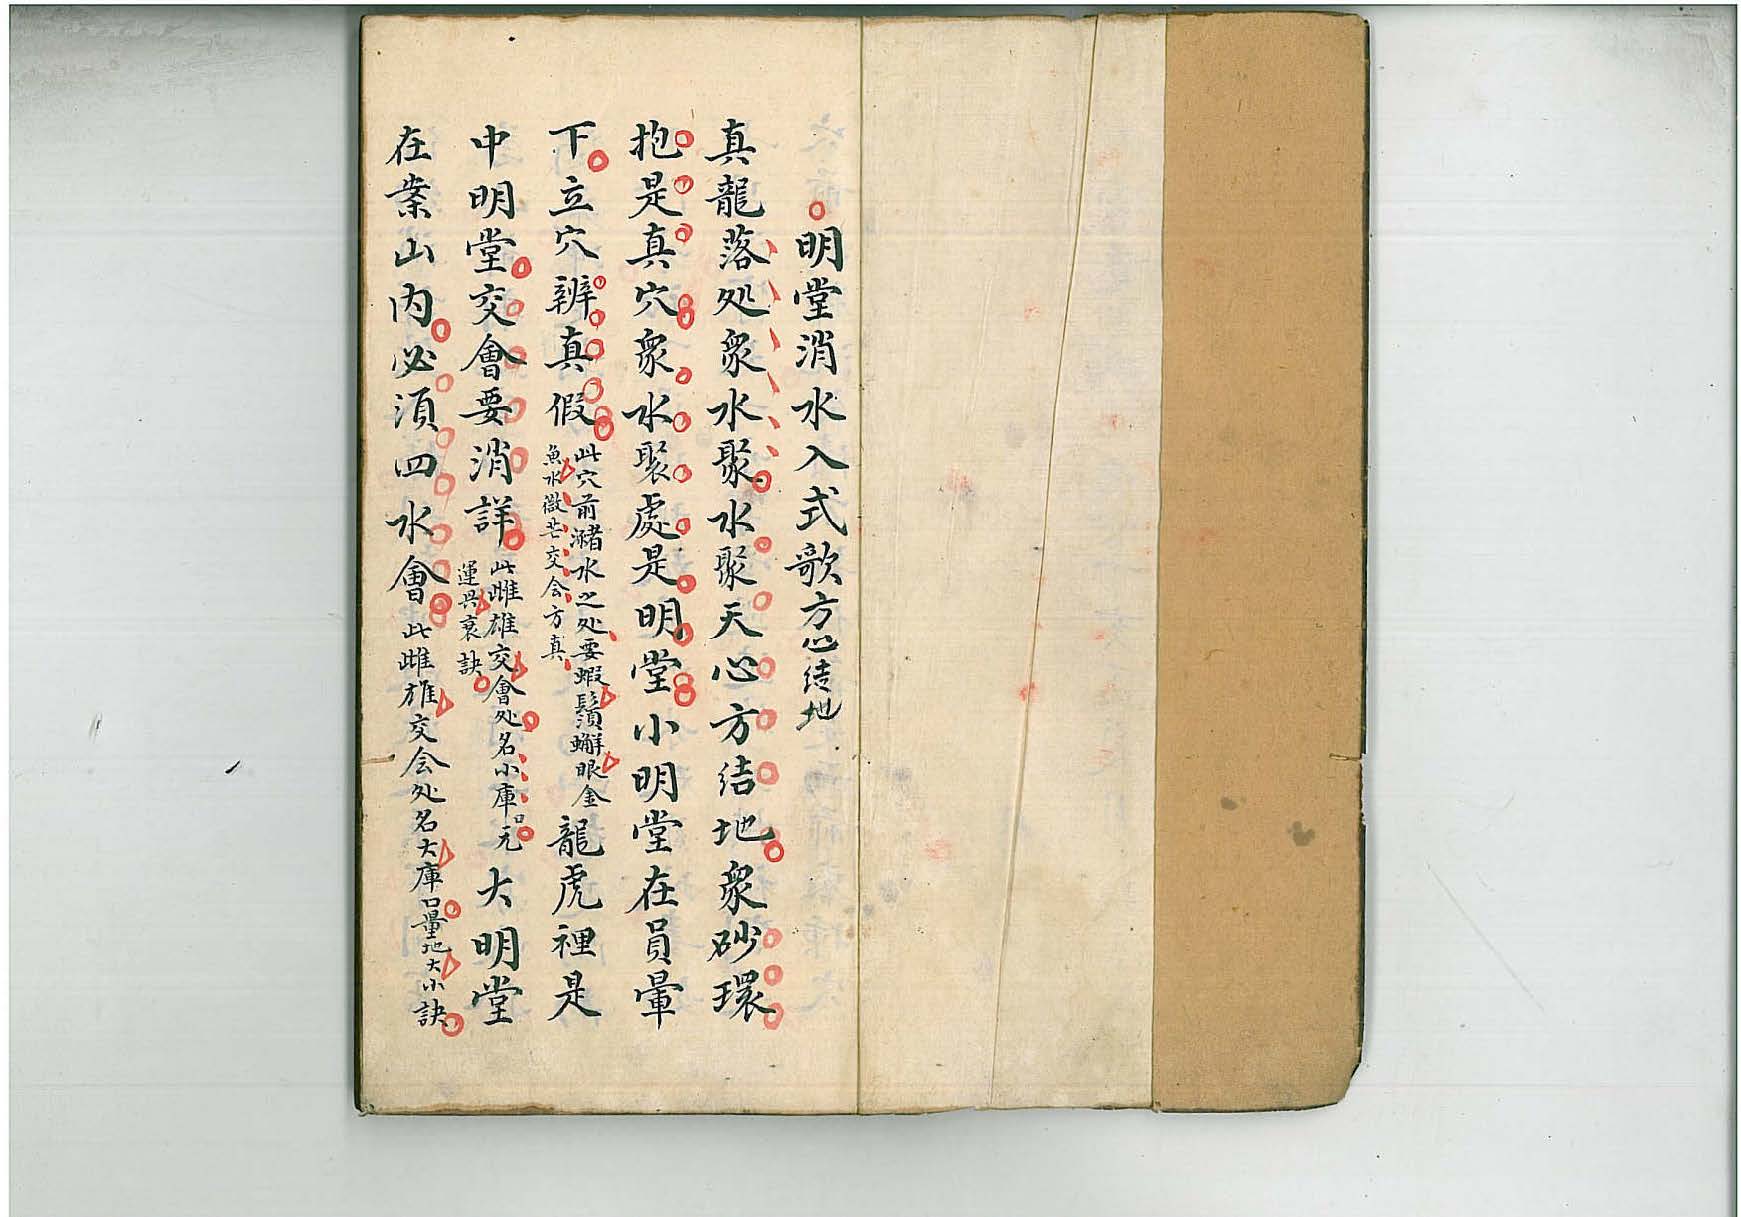 明堂消水入式歌方心结地
真龍落処衆水聚水聚天心方結地衆砂環
抱是真穴衆水聚處是明堂小明堂在員暈
下立穴辨真假此穴前瀦水之处要蝦鬚蠏眼金魚水微茫交会方真龍虎裡是
中明堂交會要消詳此雌雄交會处名小庫口元運畏衰訣大明堂
在案山内必須四水會此雌雄交会处名大庫口量地大小訣